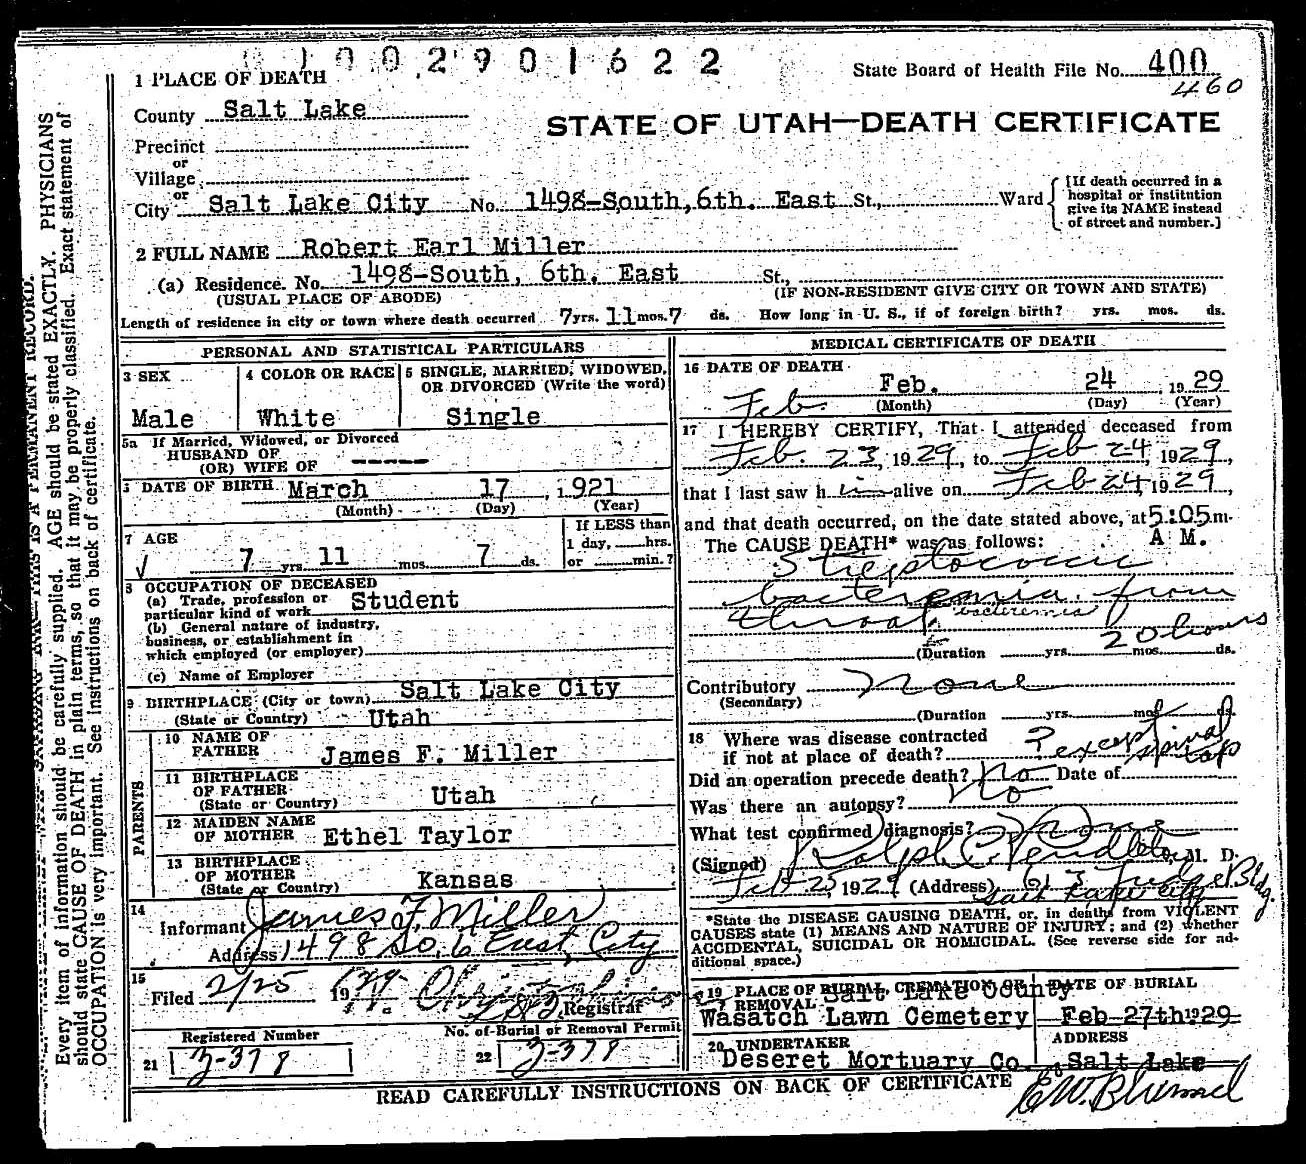 1002901622
State Board of Health File No. 400
460
1 PLACE OF DEATH
County Salt Lake
STATE OF UTAH—DEATH CERTIFICATE
Precinct
or
Village
or
City Salt Lake City No. 1498-South, 6th. East St., Ward
[If death occurred in a hospital or institution give its NAME instead of street and number.]
2 FULL NAME Robert Earl Miller
(a) Residence. No. 1498-South, 6th. East St.,
(USUAL PLACE OF ABODE) (IF NON-RESIDENT GIVE CITY OR TOWN AND STATE)
Length of residence in city or town where death occurred 7 yrs. 11 mos. 7 ds. How long in U. S., if of foreign birth? yrs. mos. ds.
PERSONAL AND STATISTICAL PARTICULARS
3 SEX
Male
4 COLOR OR RACE
White
5 SINGLE, MARRIED, WIDOWED, OR DIVORCED (Write the word)
Single
5a If Married, Widowed, or Divorced
HUSBAND OF
(OR) WIFE OF -----
DATE OF BIRTH March 17, 1921
(Month) (Day) (Year)
7 AGE
7 yrs. 11 mos. 7 ds.
If LESS than
1 day, hrs.
or min.?
8 OCCUPATION OF DECEASED
(a) Trade, profession or
particular kind of work Student
(b) General nature of industry,
business, or establishment in
which employed (or employer)
(c) Name of Employer
9 BIRTHPLACE (City or town) Salt Lake City
(State or Country) Utah
PARENTS
10 NAME OF
FATHER James F. Miller
11 BIRTHPLACE
OF FATHER
(State or Country) Utah
12 MAIDEN NAME
OF MOTHER Ethel Taylor
13 BIRTHPLACE
OF MOTHER
(State or Country) Kansas
14
Informant James F. Miller
Address 1498 So, 6 East, City
15
Filed 2/25 1929
Registrar
Registered Number No. of Burial or Removal Permit
21 3-378 22 3-378
MEDICAL CERTIFICATE OF DEATH
16 DATE OF DEATH
Feb. 24 1929
(Month) (Day) (Year)
Feb.
17 I HEREBY CERTIFY, That I attended deceased from
Feb. 23, 1929, to Feb 24, 1929,
that I last saw h im alive on Feb 24, 1929,
and that death occurred, on the date stated above, at 5:05 m.
The CAUSE DEATH* was as follows: A M.
Streptococcic
bacteremia from
throat. bacteremia
20 hours
(Duration yrs. mos. ds.
Contributory None
(Secondary)
(Duration yrs. mos. ds.
18 Where was disease contracted
if not at place of death? ? except spinal tap
Did an operation precede death? No Date of
Was there an autopsy? No
What test confirmed diagnosis? None
(Signed) Ralph C. Pendleton, M. D.
Feb 25, 1929 (Address) 613 Judge Bldg.
Salt Lake City
*State the DISEASE CAUSING DEATH, or, in deaths from VIOLENT
CAUSES state (1) MEANS AND NATURE OF INJURY; and (2) whether
ACCIDENTAL, SUICIDAL OR HOMICIDAL. (See reverse side for ad-
ditional space.)
19 PLACE OF BURIAL, CREMATION OR
REMOVAL Salt Lake County
Wasatch Lawn Cemetery
DATE OF BURIAL
Feb 27th. 1929
20 UNDERTAKER
Deseret Mortuary Co.
ADDRESS
Salt Lake
READ CAREFULLY INSTRUCTIONS ON BACK OF CERTIFICATE
Every item of information should be carefully supplied. AGE should be stated EXACTLY. PHYSICIANS
should state CAUSE OF DEATH in plain terms, so that it may be properly classified. Exact statement of
OCCUPATION is very important. See instructions on back of certificate.